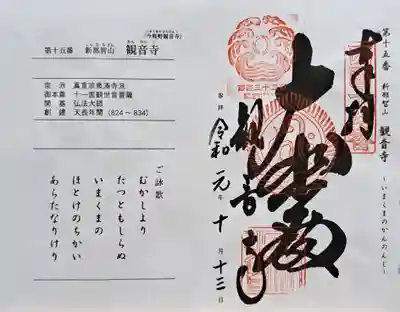 「今熊野観音寺」
第十五番 新那智山 観音寺
宗派 真言宗泉涌寺派
御本尊 十一面観世音菩薩
開基 弘法大師
創建 天長年間(824～834)
ご詠歌
むかしより
たつともしらぬ
いまくまの
ほとけのちかい
あらたなりけり
第十五番 新那智山 観音寺 ～いまくまのかんのんじ～
奉拝
観音寺
令和元年十月十三日